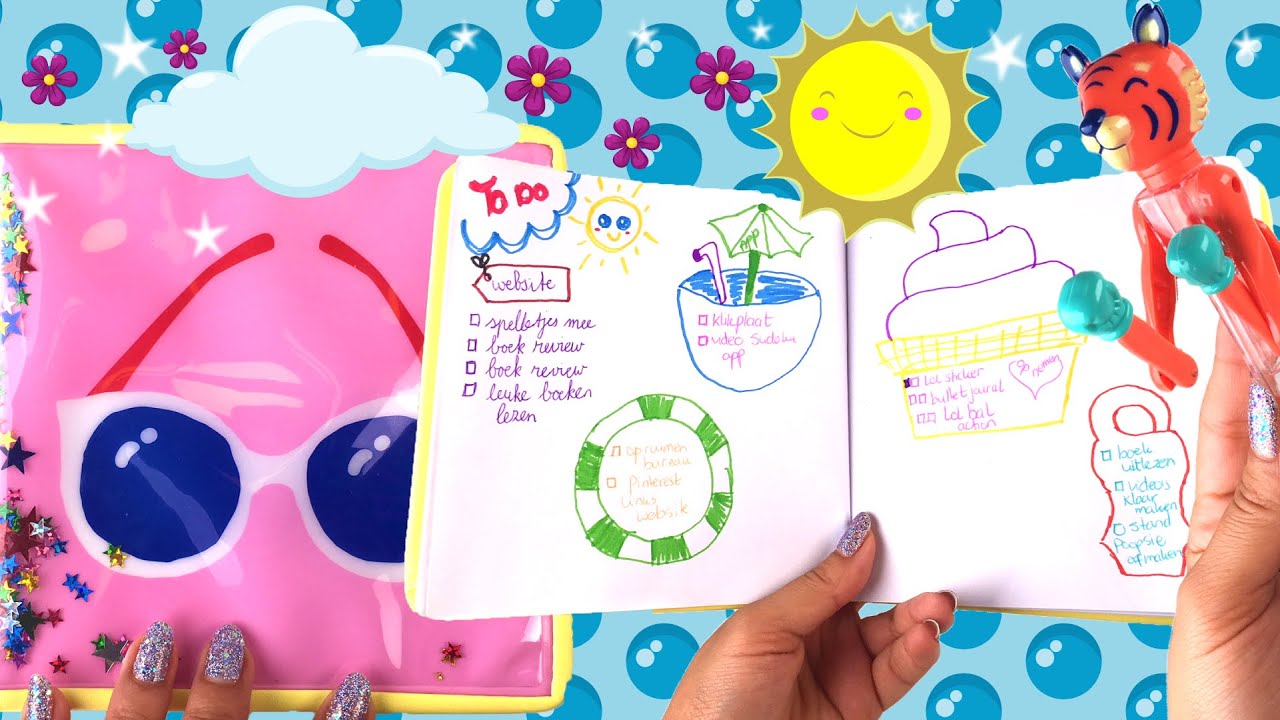 To Do
website
spelletjes mee
boek review
boek review
leuke boeken
lezen
APP
klikplaat
video Sudoku
app
opruimen
bureau
Pinterest
Linus
website
Lol sticker
bullet journal
Lol bal
actien
go
nomen
boek
uitlezen
videos
klaar
maken
stand
Poopsie
afmaken